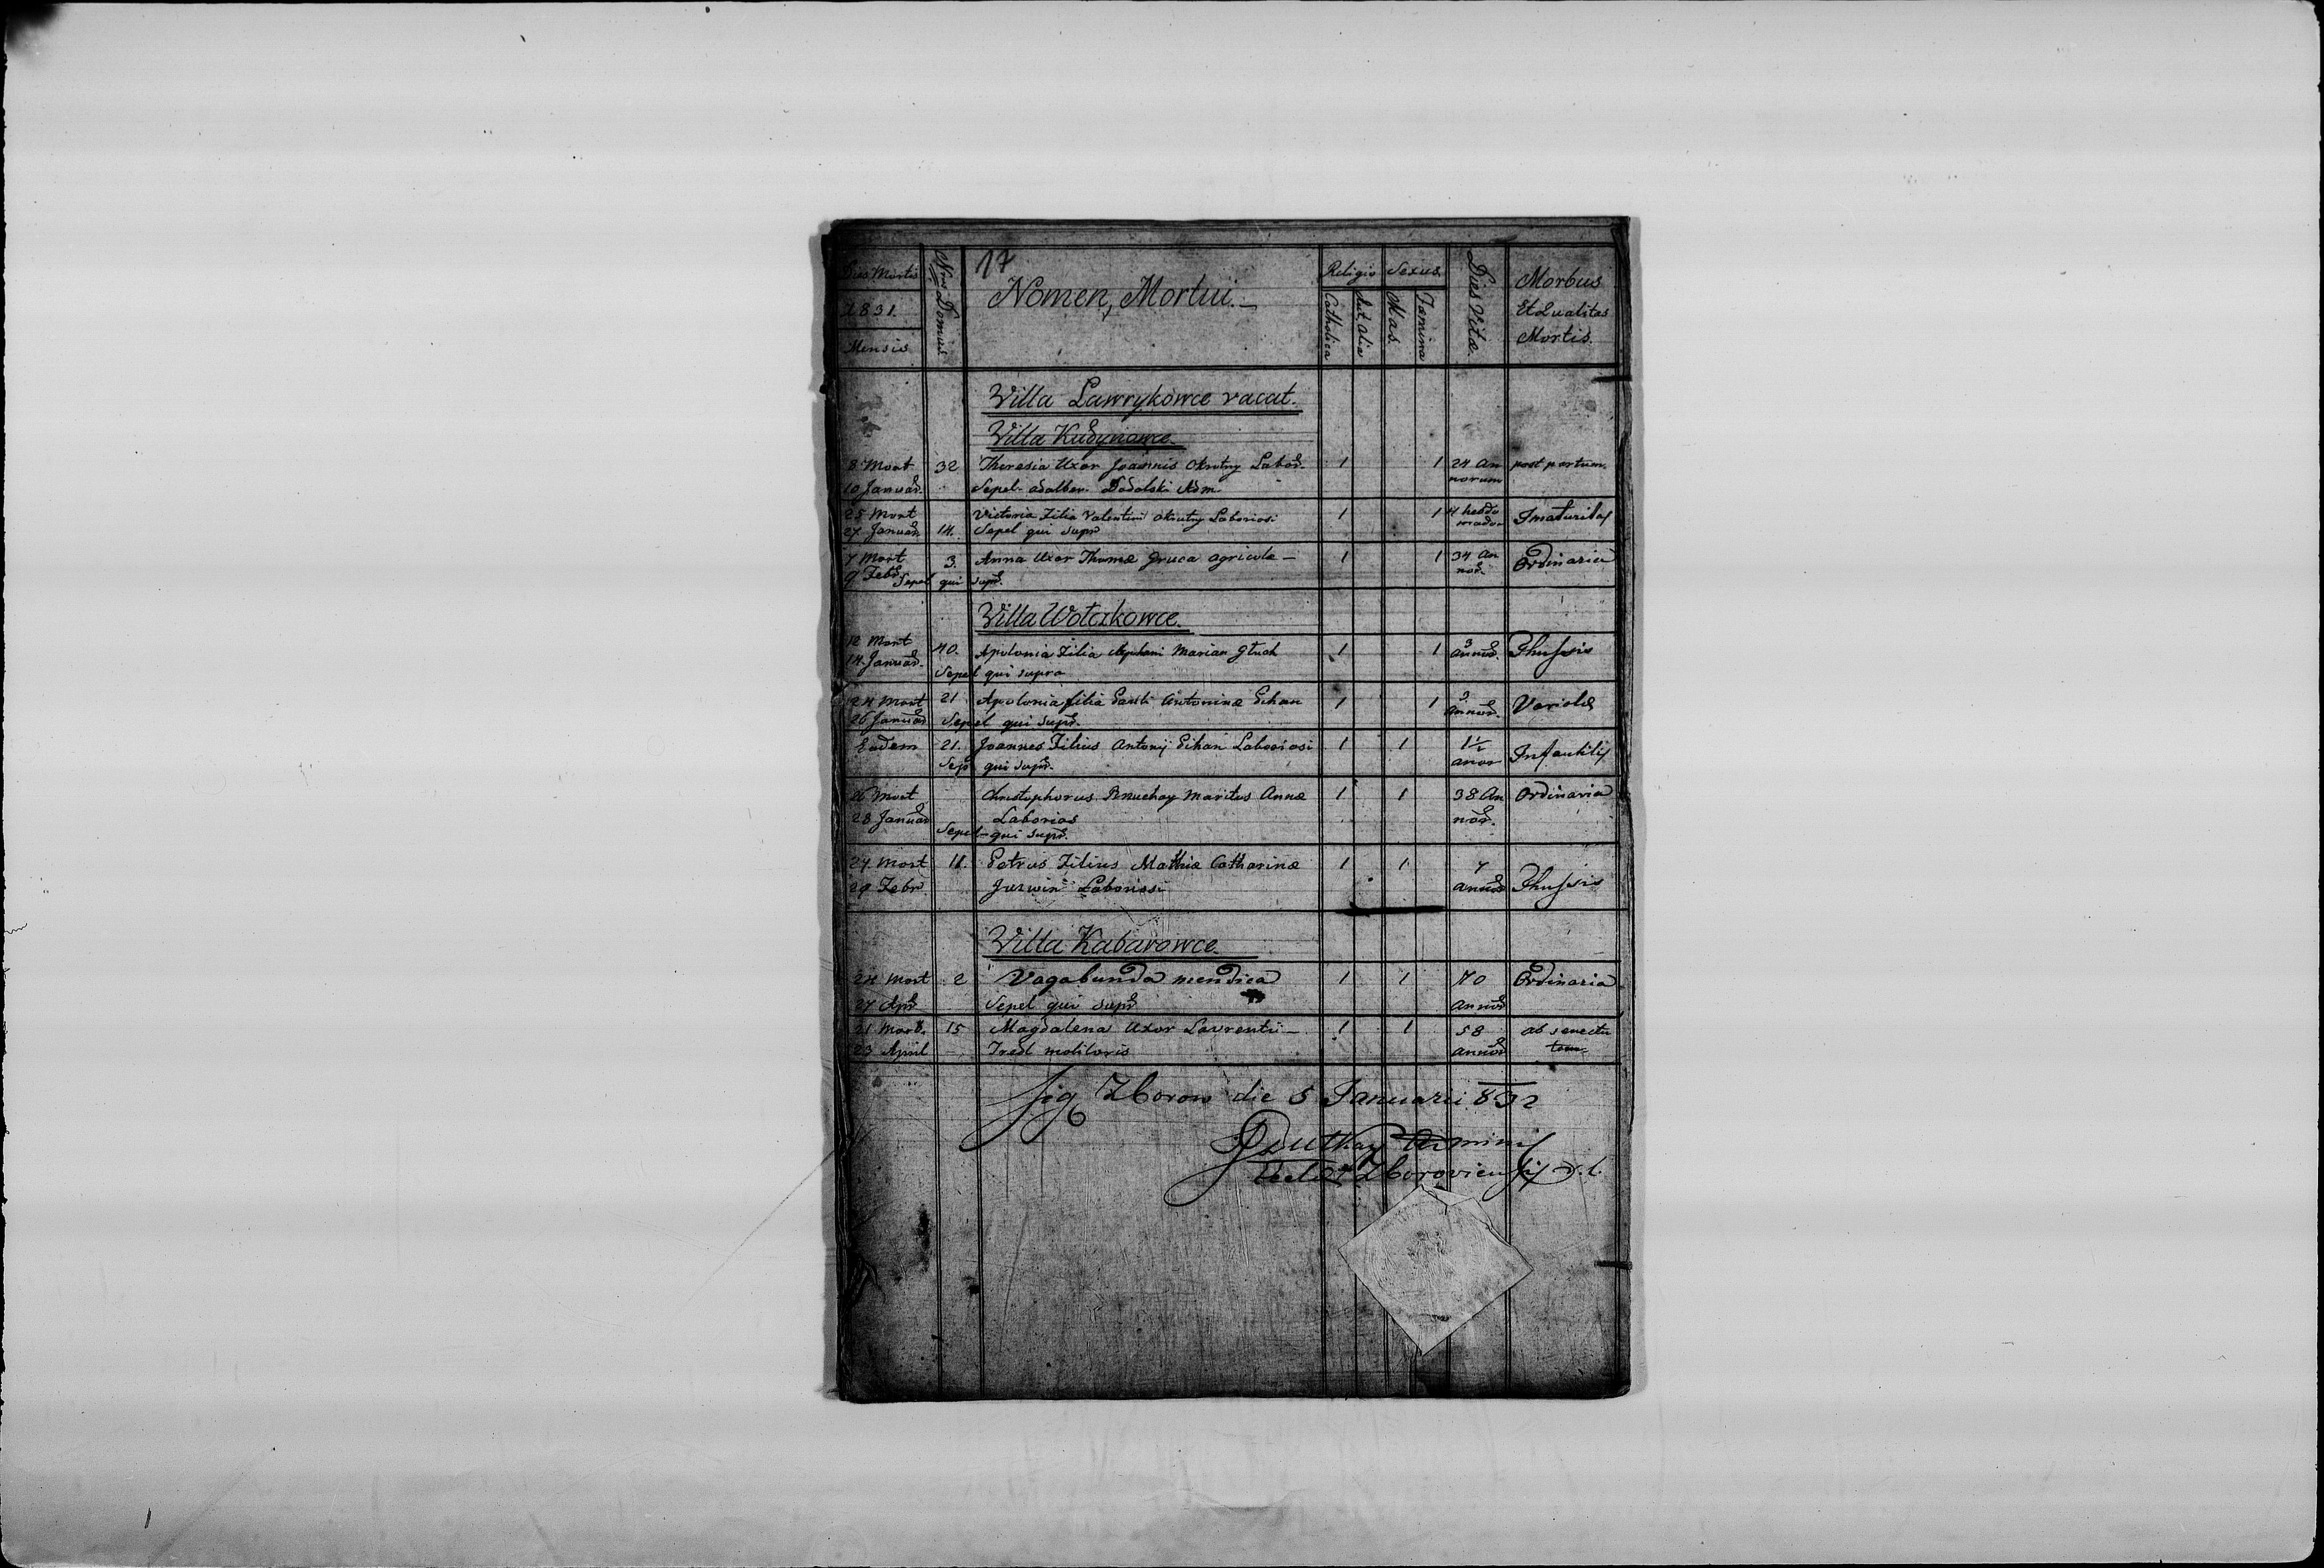 17
Dies Mortis
1831.
Mensis
Nrus Domus
Nomen, Mortui.
Religio
Catholica
Aut alia
Sexus
Mas
Fœmina
Dies Vitæ
Morbus
Et Qualitas
Mortis
Villa Lawrykowce vacat.
Villa Kudynowce
8 Mort 32 Theresia Uxor Joannis Okrutny Labor. 1 1 24 An post partum
10 Januar. Sepel. adalber. Dodolski Adm. norum
25 Mort Victoria Filia Valentini Okrutny Laboriosi 1 1 4 hebdo Imaturitas
27 Januar 14. Sepel qui supr mador
7 Mort 3. Anna Uxor Thomæ Gruca agricolæ 1 1 34 An Ordinaria
9 Febr Sepel qui supr. nor.
Villa Wołczkowce.
12 Mort 40. Apolonia Filia Stephani Marian Głuch 1 1 3 Thussis
14 Januar. Sepel qui supra annor.
24 Mort 21 Apolonia filia Pauli Antoninæ Cihan 1 1 3 Variola
26 Januar Sepel qui supr. annor.
Eadem 21. Joannes Filius Antonij Cihan Laboriosi 1 1 1½ Infantilis
Sepe qui supr. anor
26 Mort Christophorus maritus Annæ 1 1 38 An Ordinaria
28 Januar Laborios nor.
Sepel qui supr.
27 Mort 11. Petrus Filius Mathiæ Catharinæ 1 1 7
29 Febr. Laboriosi annor Thussis
Villa Kabarowce
24 Mort 2 Vagabunda mendica 1 1 70 Ordinaria
27 Apr Sepel qui supr annor
21 Mort. 15 Magdalena Uxor Laurentii 1 1 58 ab senectu
23 April Fredl molitoris annor tem
Sig Zborow die 5 Januarii 832
Zboroviensis r. l.